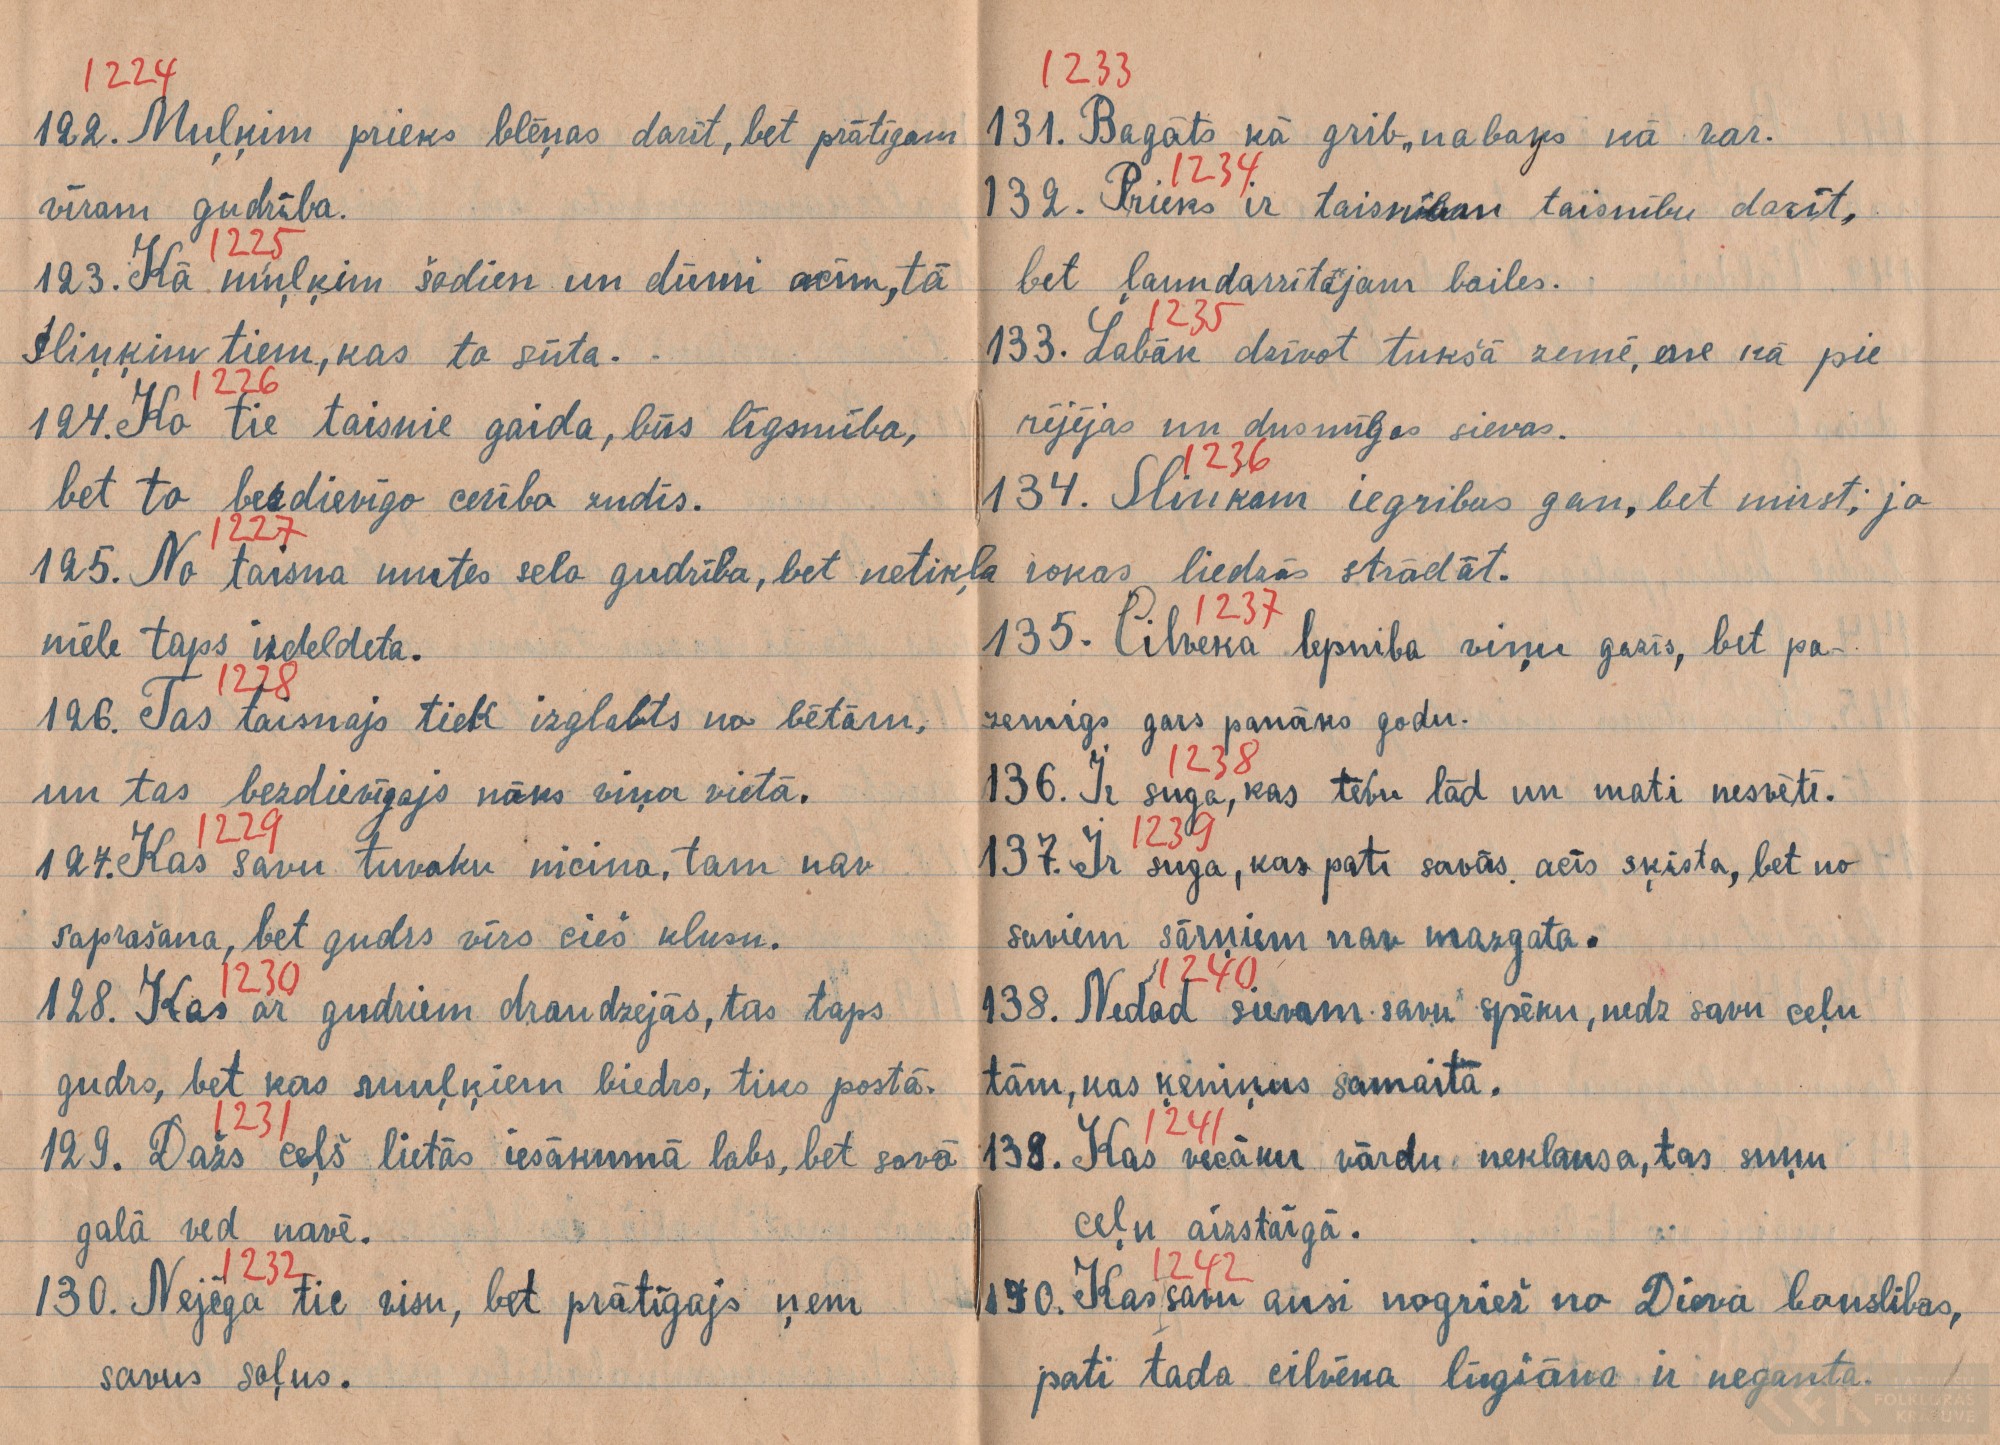 1224
122. Muļķim prieks blēņas darīt, bet prātīgam
vīram gudrība.
1225
123. Kā muļķim šodien un dūmi acīm, tā
sliņķim tiem, kas to sūta.
1226
124. Ko tie taisnie gaida, būs līgsmība,
bet to bezdievīgo cerība zudīs.
1227
125. No taisna mutes selo gudrība, bet netikļa
mēle taps izdeldeta.
1228
126. Tas taisnajs tiek izglabts no bētām,
un tas bezdievīgajs nāks viņa vietā.
1229
127. Kas savu tuvaku nicina, tam nav
saprašana, bet gudrs vīrs cieš klusu.
1230
128. Kas ar gudriem draudzejās, tas taps
gudrs, bet kas muļķiem biedrs, tiks postā.
1231
129. Dažs ceļš lietās iesākumā labs, bet savā
galā ved navē.
1232
130. Nejēga tic visu, bet prātīgajs ņem
savus soļus.
1233
131. Bagāts kā grib, nabags kā var.
1234
132. Prieks ir taisnību darīt,
bet ļaundarītājam bailes.
1235
133. Labāk dzīvot tukšā zemē, ne kā pie
rējējas un dusmīgas sievas.
1236
134. Slinkam iegribas gan, bet mirst; jo
rokas liedzās strādāt.
1237
135. Cilveka lepniba viņu gazīs, bet pa-
zemigs gars panāks godu.
1238
136. Ir suga, kas tēvu lād un mati nesvētī.
1239
137. Ir suga, kas pati savās acīs sķista, bet no
saviem sārņiem nav mazgata.
1240
138. Nedod sievam savu spēku, nedz savu ceļu
tām, kas ķeniņus samaitā.
1241
139. Kas vecāku vārdu neklausa, tas suņu
ceļu aizstaigā.
1242
140. Kas savu ausi nogriež no Dieva bauslibas,
pati tada cilvēka lūgšana ir neganta.
FOLKLORAS
KRĀTUVE